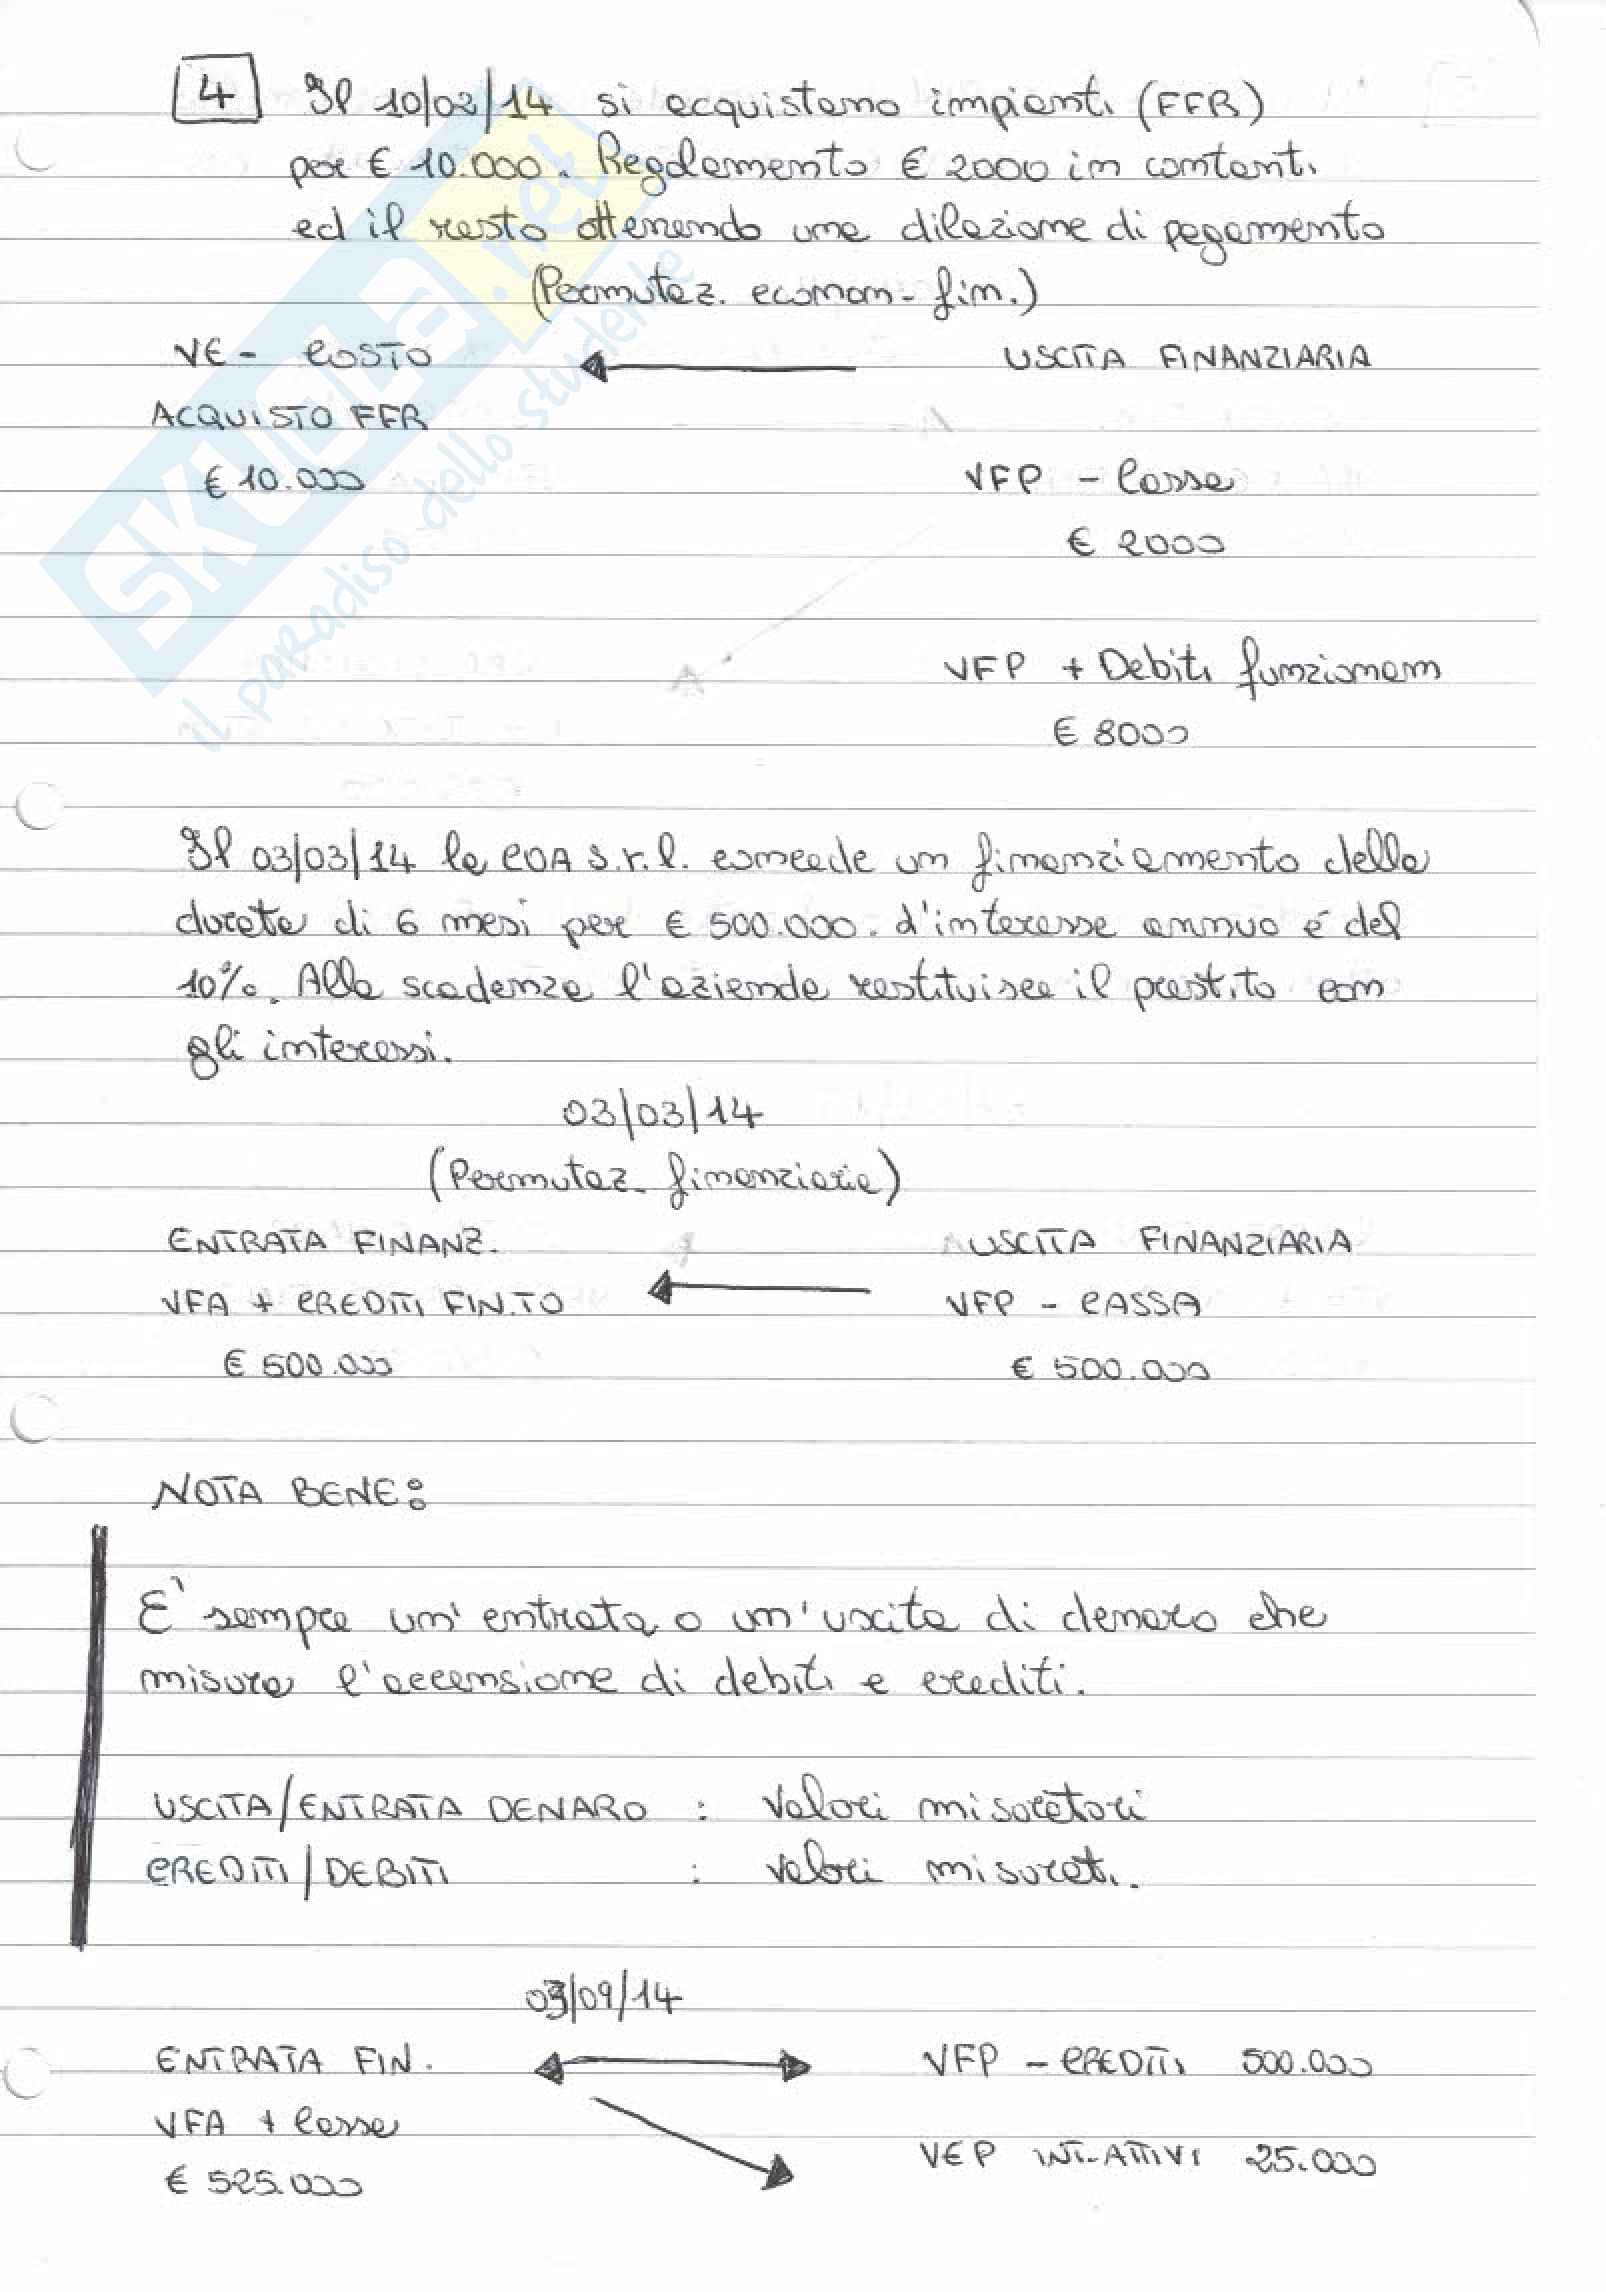 4 Il 10/02/14 si acquistano impianti (FFR)
per € 10.000. Regolamento € 2000 in contanti
ed il resto ottenendo una dilazione di pagamento
(Permutaz. econom-fin.)
VE - COSTO USCITA FINANZIARIA
ACQUISTO FFR
€ 10.000 VFP - Cassa
€ 2000
VFP + Debiti funzionam
€ 8000
Il 03/03/14 la COA S.r.l. concede un finanziamento della
durata di 6 mesi per € 500.000. L'interesse annuo é del
10%. Alla scadenza l'azienda restituisce il prestito con
gli interessi.
03/03/14
(Permutaz. finanziaria)
ENTRATA FINANZ. USCITA FINANZIARIA
VFA + CREDITI FIN.TO VFP - CASSA
€ 500.000 € 500.000
NOTA BENE:
E' sempre un'entrata o un'uscita di denaro che
misura l'accensione di debiti e crediti.
USCITA/ENTRATA DENARO : Valori misuratori
CREDITI/DEBITI : Valori misurati.
03/09/14
ENTRATA FIN. VFP - CREDITI 500.000
VFA + Cassa
VEP INT. ATTIVI 25.000
€ 525.000
SKUOLA.net
il paradiso dello studente